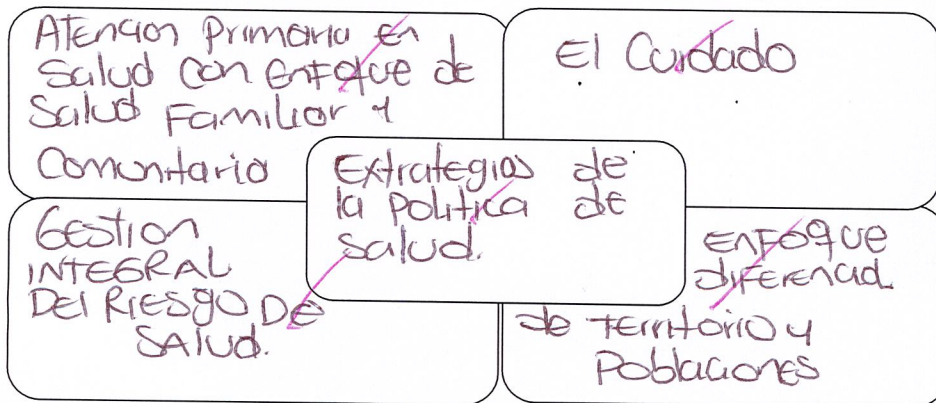 Atencion Primaria en
Salud con Enfoque de
Salud Familiar y
Comuntario
El Cuidado
Extrategias de
la politica de
salud.
Gestion
INTEGRAL
DEl RIESGO DE
SAlud.
ENFOQUE
diferenciad.
de territorio y
Poblaciones